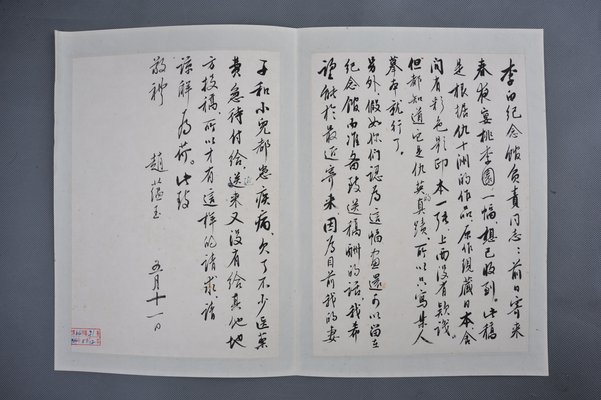 李白纪念馆负责同志：前日寄来
春夜宴桃李园一幅想已收到。此稿
是根据仇十洲的作品，原作现藏日本，
间有彩色影印本一张，上面没有款识。
但都知道它是仇英的真蹟，所以只写某人
摹本就行了。
另外，假如你们认为这幅画还可以留在
纪念馆而准备致送稿酬的话，我希
望能於最近寄来，因为目前我的妻
子和小儿都患疾病，欠了不少医药
费急待付给，近来又没有给其他地
方投稿，所以才有这样的请求，请
谅解为荷。此致
敬礼
赵蕴玉
五月十一日